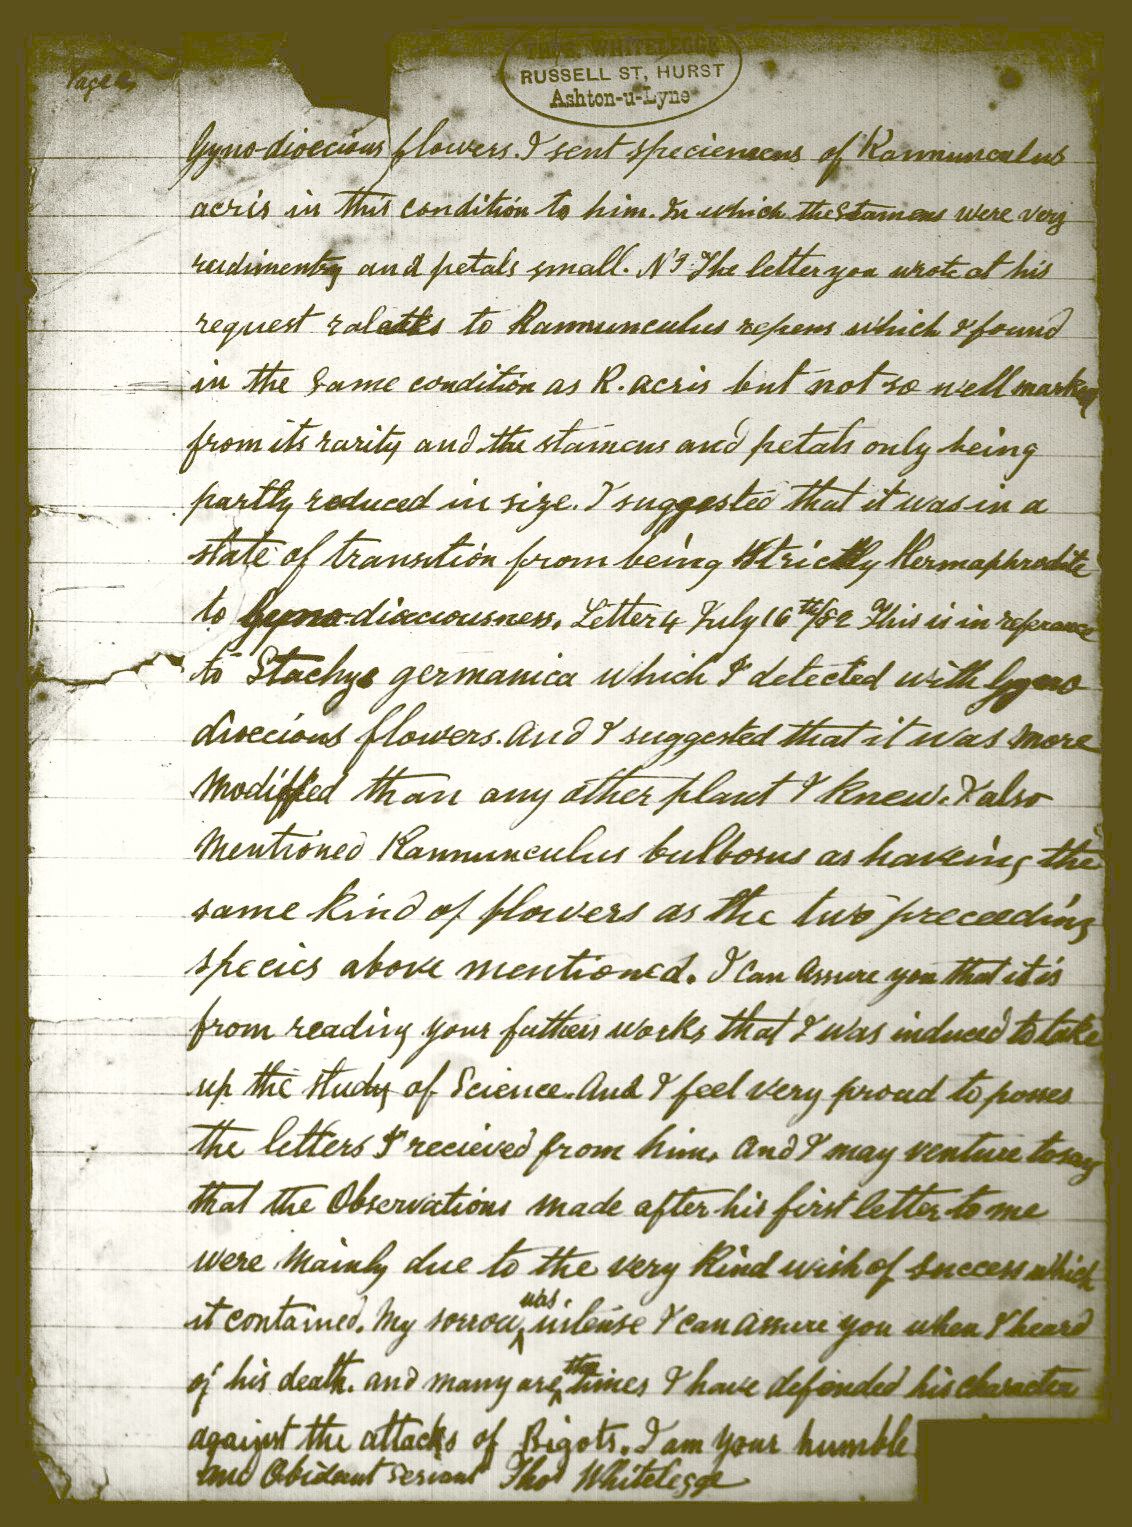 Page 2
THOS. WHITELEGGE
RUSSELL ST, HURST
Ashton-u-Lyne
Gyno-dioecious flowers. I sent speciemens of Rannunculus
acris in this condition to him. In which the Stamens were very
rudimentry and petals small. N3 The letter you wrote at his
request ralattes to Rannunculus repens which I found
in the same condition as R. acris but not so well marked
from its rarity and the stamens and petals only being
partly reduced in size. I suggested that it was in a
state of transition from being strictly Hermaphrodite
to Gyno-diaciousness. Letter 4 July 16th/82 This is in referance
to Stachys germanica which I detected with Gyno
dioecious flowers. And I suggested that it was more
Modiffied than any other plant I knew. I also
Mentioned Rannunculus bulbosus as haveing the
same kind of flowers as the two preceeding
species above mentioned. I can assure you that it is
from reading your fathers works that I was induced to take
up the study of Science. And I feel very proud to posses
the letters I recieved from him. And I may venture to say
that the Observations made after his first letter to me
were Mainly due to the very kind wish of success which
it contained. My sorrow was intense I can assure you when I heard
of his death. and many are the times I have defended his character
against the attacks of Bigots. I am your humble
and Obidant servant Thos Whitelegge